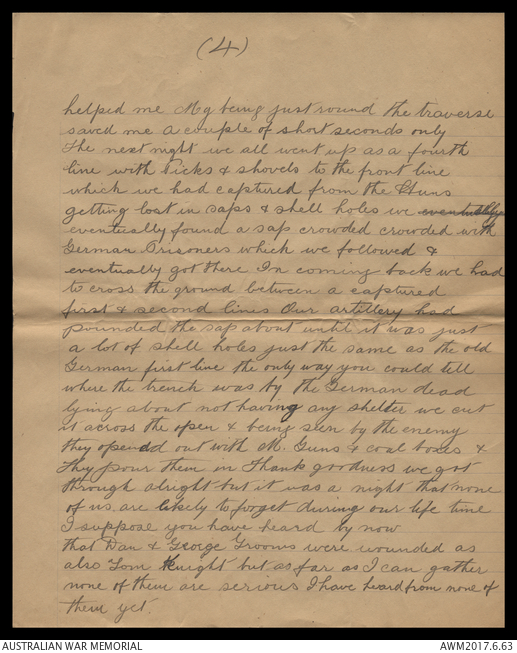 (4)
helped me My being just round the traverse
saved me a couple of short seconds only
The next night we all went up as a fourth
line with Picks & shovels to the front line
which we had captured from the Huns
getting lost in saps & shell holes we eventually
eventually found a sap crowded crowded with
German Prisoners which we followed &
eventually got there In coming back we had
to cross the ground between a captured
first & second lines Our artillery had
pounded the sap about until it was just
a lot of shell holes just the same as the old
German first line the only way you could tell
where the trench was by the German dead
lying about not having any shelter we cut
it across the open & being seen by the enemy
they opened out with M. Guns & coal boxes &
they pour them in Thank goodness we got
through alright but it was a night that none
of us are likely to forget during our life time
I suppose you have heard by now
that Dan & George Grooms were wounded as
also Tom Knight but as far as I can gather
none of them are serious I have heard from none of
them yet.
AUSTRALIAN WAR MEMORIAL
AWM2017.6.63